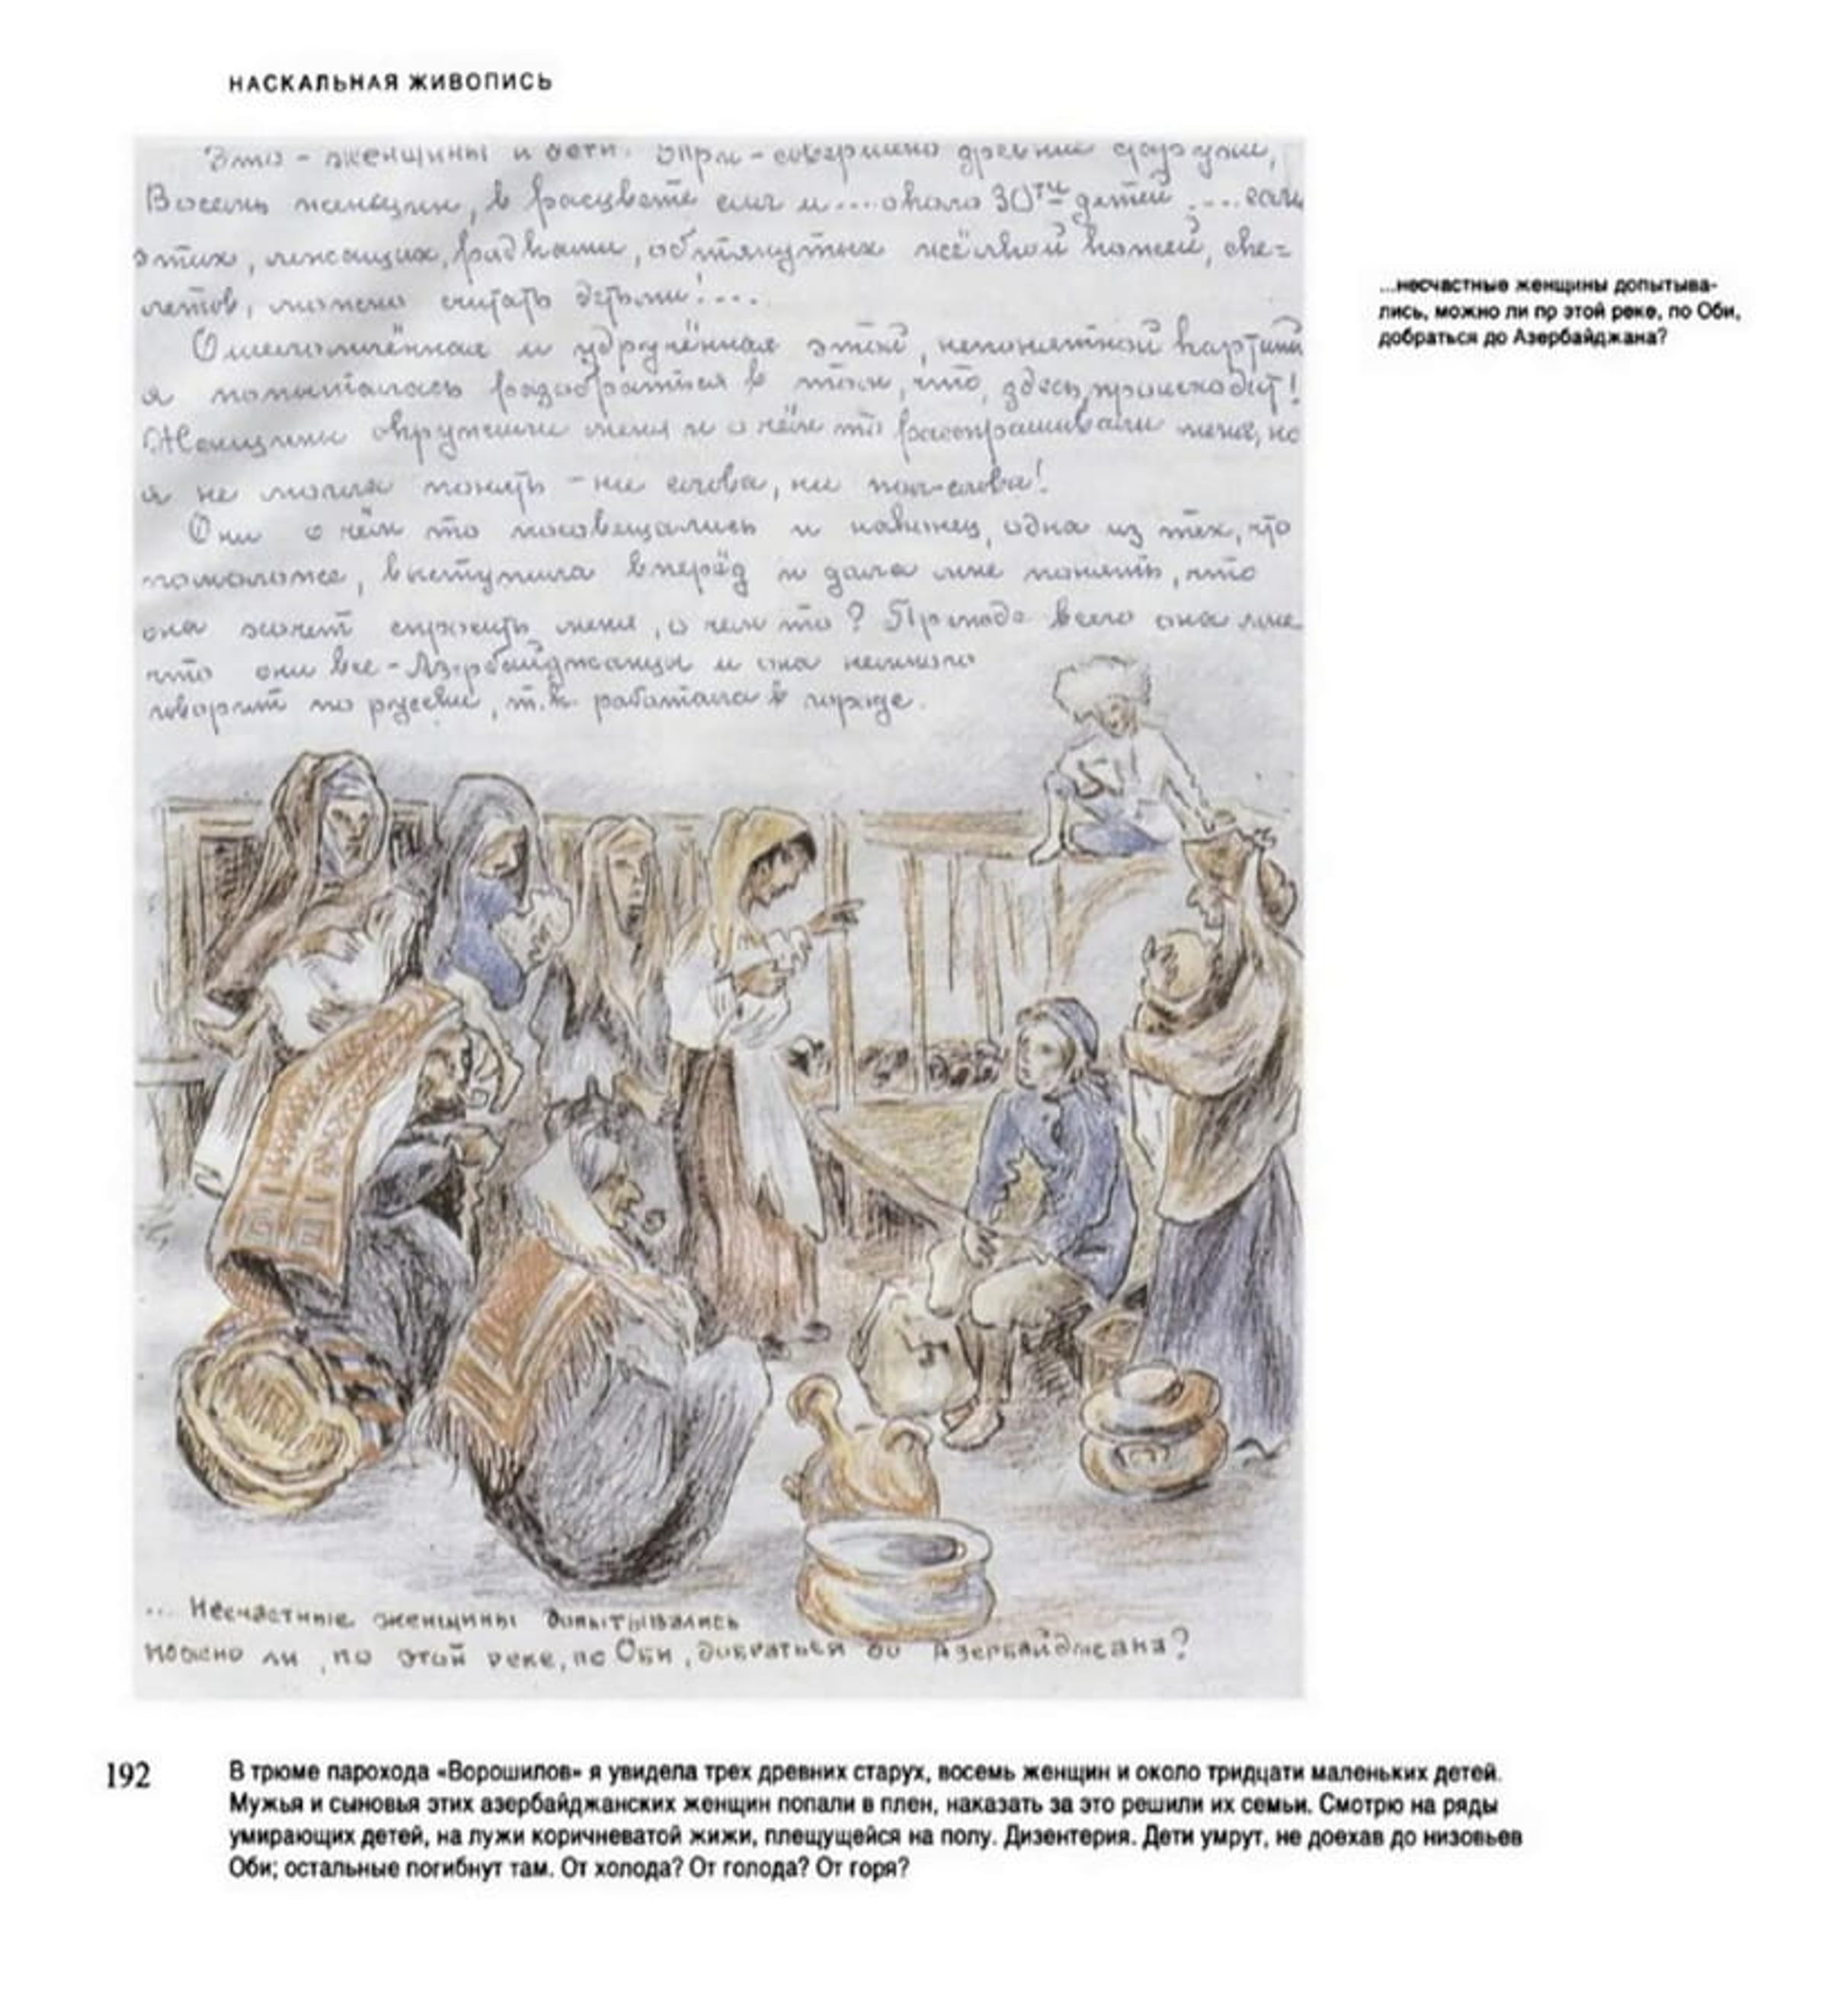 НАСКАЛЬНАЯ ЖИВОПИСЬ
Это - женщины и дети. три - совершенно древние старухи,
Восемь женщин, в расцвете сил и.... около 30ти детей .... если
этих, лежащих, рядками, обтянутых жёлтой кожей, ске=
летов, можно считать детьми!....
Ошеломлённая и удручённая этой, непонятной картиной
я попыталась разобраться в том, что, здесь, происходит!
Женщины окружили меня и о чём то расспрашивали меня, но
я не могла понять - ни слова, ни пол-слова!
Они о чём то посовещались и наконец, одна из тех, что
помоложе, выступила вперёд и дала мне понять, что
она хочет спросить меня, о чем то? Прежде всего она мне
что они все - Азербайджанцы и она немного
говорит по русски, т.к. работала в городе.
...несчастные женщины допытыва-
лись, можно ли пр этой реке, по Оби,
добраться до Азербайджана?
... Несчастные женщины допытывались
можно ли, по этой реке, по Оби, добраться до Азербайджана?
192
В трюме парохода «Ворошилов» я увидела трех древних старух, восемь женщин и около тридцати маленьких детей.
Мужья и сыновья этих азербайджанских женщин попали в плен, наказать за это решили их семьи. Смотрю на ряды
умирающих детей, на лужи коричневатой жижи, плещущейся на полу. Дизентерия. Дети умрут, не доехав до низовьев
Оби; остальные погибнут там. От холода? От голода? От горя?